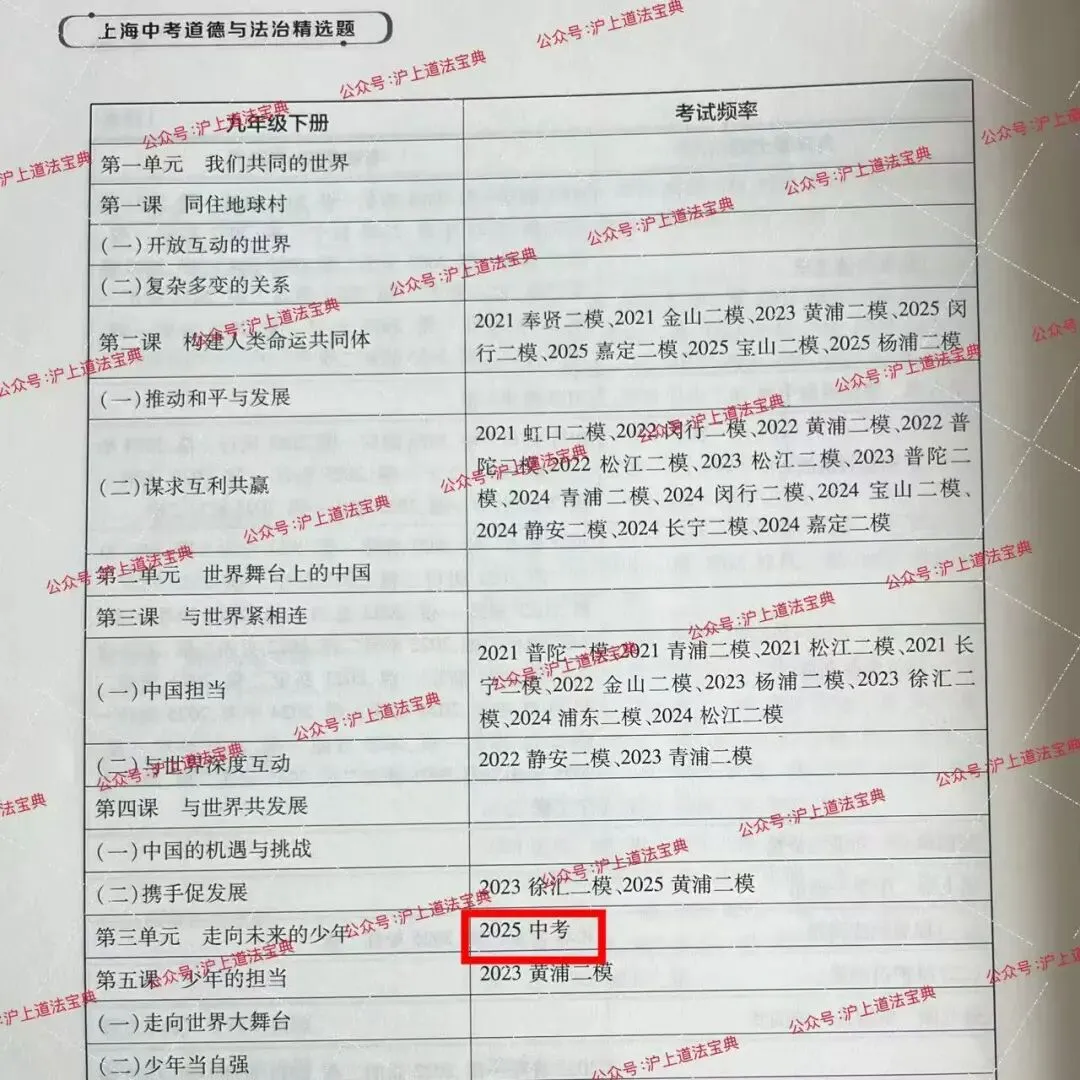 上海中考道德与法治精选题
九年级下册 考试频率
第一单元 我们共同的世界
第一课 同住地球村
(一)开放互动的世界
(二)复杂多变的关系
第二课 构建人类命运共同体
2021 奉贤二模、2021 金山二模、2023 黄浦二模、2025 闵
行二模、2025 嘉定二模、2025 宝山二模、2025 杨浦二模
(一)推动和平与发展
(二)谋求互利共赢
2021 虹口二模、2022 闵行二模、2022 黄浦二模、2022 普
陀二模、2022 松江二模、2023 松江二模、2023 普陀二
模、2024 青浦二模、2024 闵行二模、2024 宝山二模、
2024 静安二模、2024 长宁二模、2024 嘉定二模
第二单元 世界舞台上的中国
第三课 与世界紧相连
(一)中国担当
2021 普陀二模、2021 青浦二模、2021 松江二模、2021 长
宁二模、2022 金山二模、2023 杨浦二模、2023 徐汇二
模、2024 浦东二模、2024 松江二模
(二)与世界深度互动 2022 静安二模、2023 青浦二模
第四课 与世界共发展
(一)中国的机遇与挑战
(二)携手促发展 2023 徐汇二模、2025 黄浦二模
第三单元 走向未来的少年 2025 中考
第五课 少年的担当 2023 黄浦二模
(一)走向世界大舞台
(二)少年当自强
公众号:沪上道法宝典